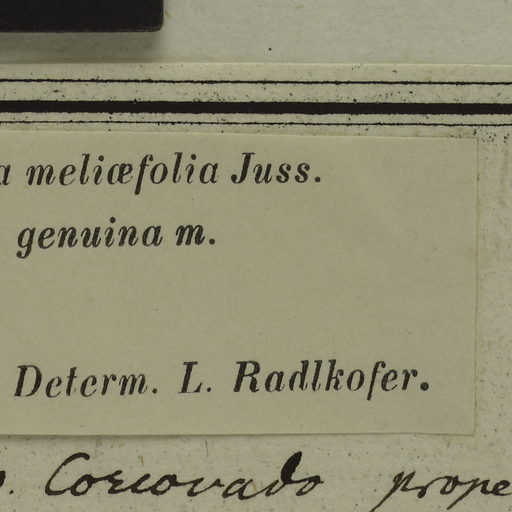 a meliæfolia Juss.
genuina m.
Determ. L. Radlkofer.
Corcovado prope